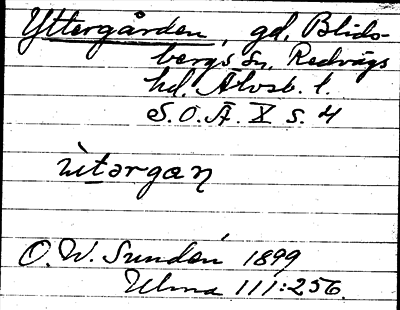 Yttergården, gd. Blids-
bergs sn, Redvägs
hd. Älvsb. l.
S.O.Ä. X s. 4
ùtərgæɳ
O. W. Sundén 1899
Ulma 111:256.